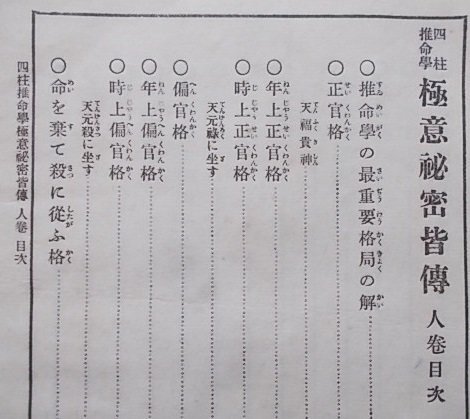 四柱推命學 極意祕密皆傳 人卷目次
○推命學の最重要格局の解
○正官格
天福貴神
○年上正官格
○時上正官格
天元祿に坐す
○偏官格
○年上偏官格
○時上偏官格
天元殺に坐す
○命を棄て殺に從ふ格
四柱推命學極意祕密皆傳 人卷 目次